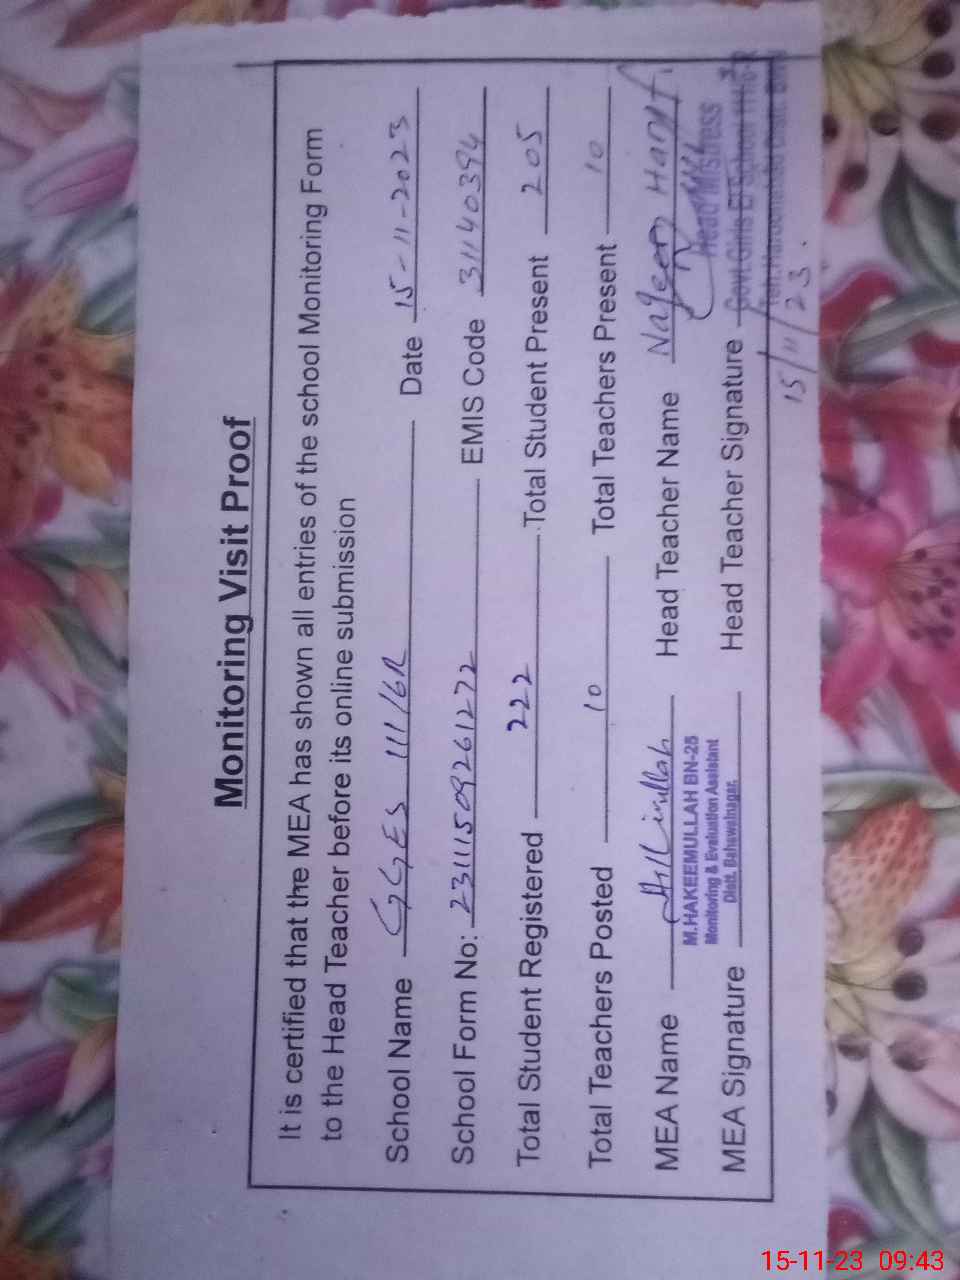 Monitoring Visit Proof
It is certified that the MEA has shown all entries of the school Monitoring Form
to the Head Teacher before its online submission
School Name GGES 111/6R Date 15-11-2023
School Form No: 23111509261272 EMIS Code 31140394
Total Student Registered 222 Total Student Present 205
Total Teachers Posted 10 Total Teachers Present 10
MEA Name Head Teacher Name
M.HAKEEMULLAH BN-25
Monitoring & Evaluation Assistant
Distt. Bahawalnagar.
MEA Signature Head Teacher Signature
Head Mistress
Govt. Girls E/School
15/11/23.
15-11-23 09:43